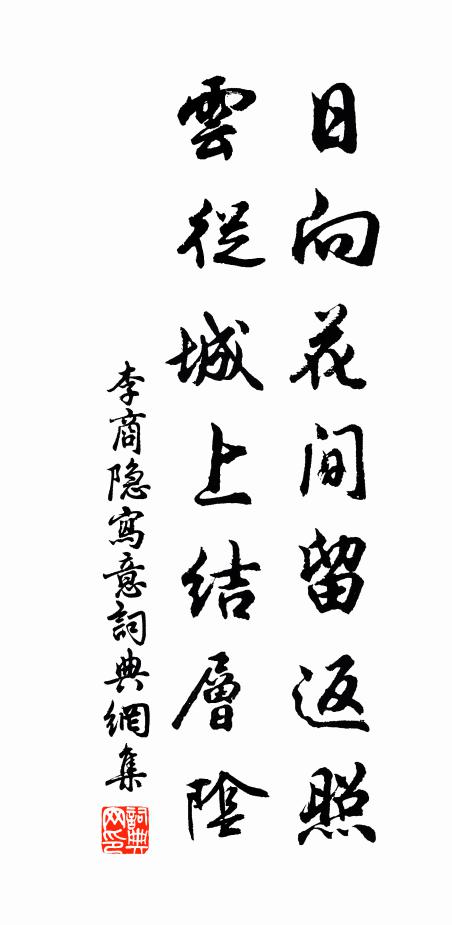 日向花間留返照
雲從城上結層陰
李商隐寫意詞典網集
詞典网印